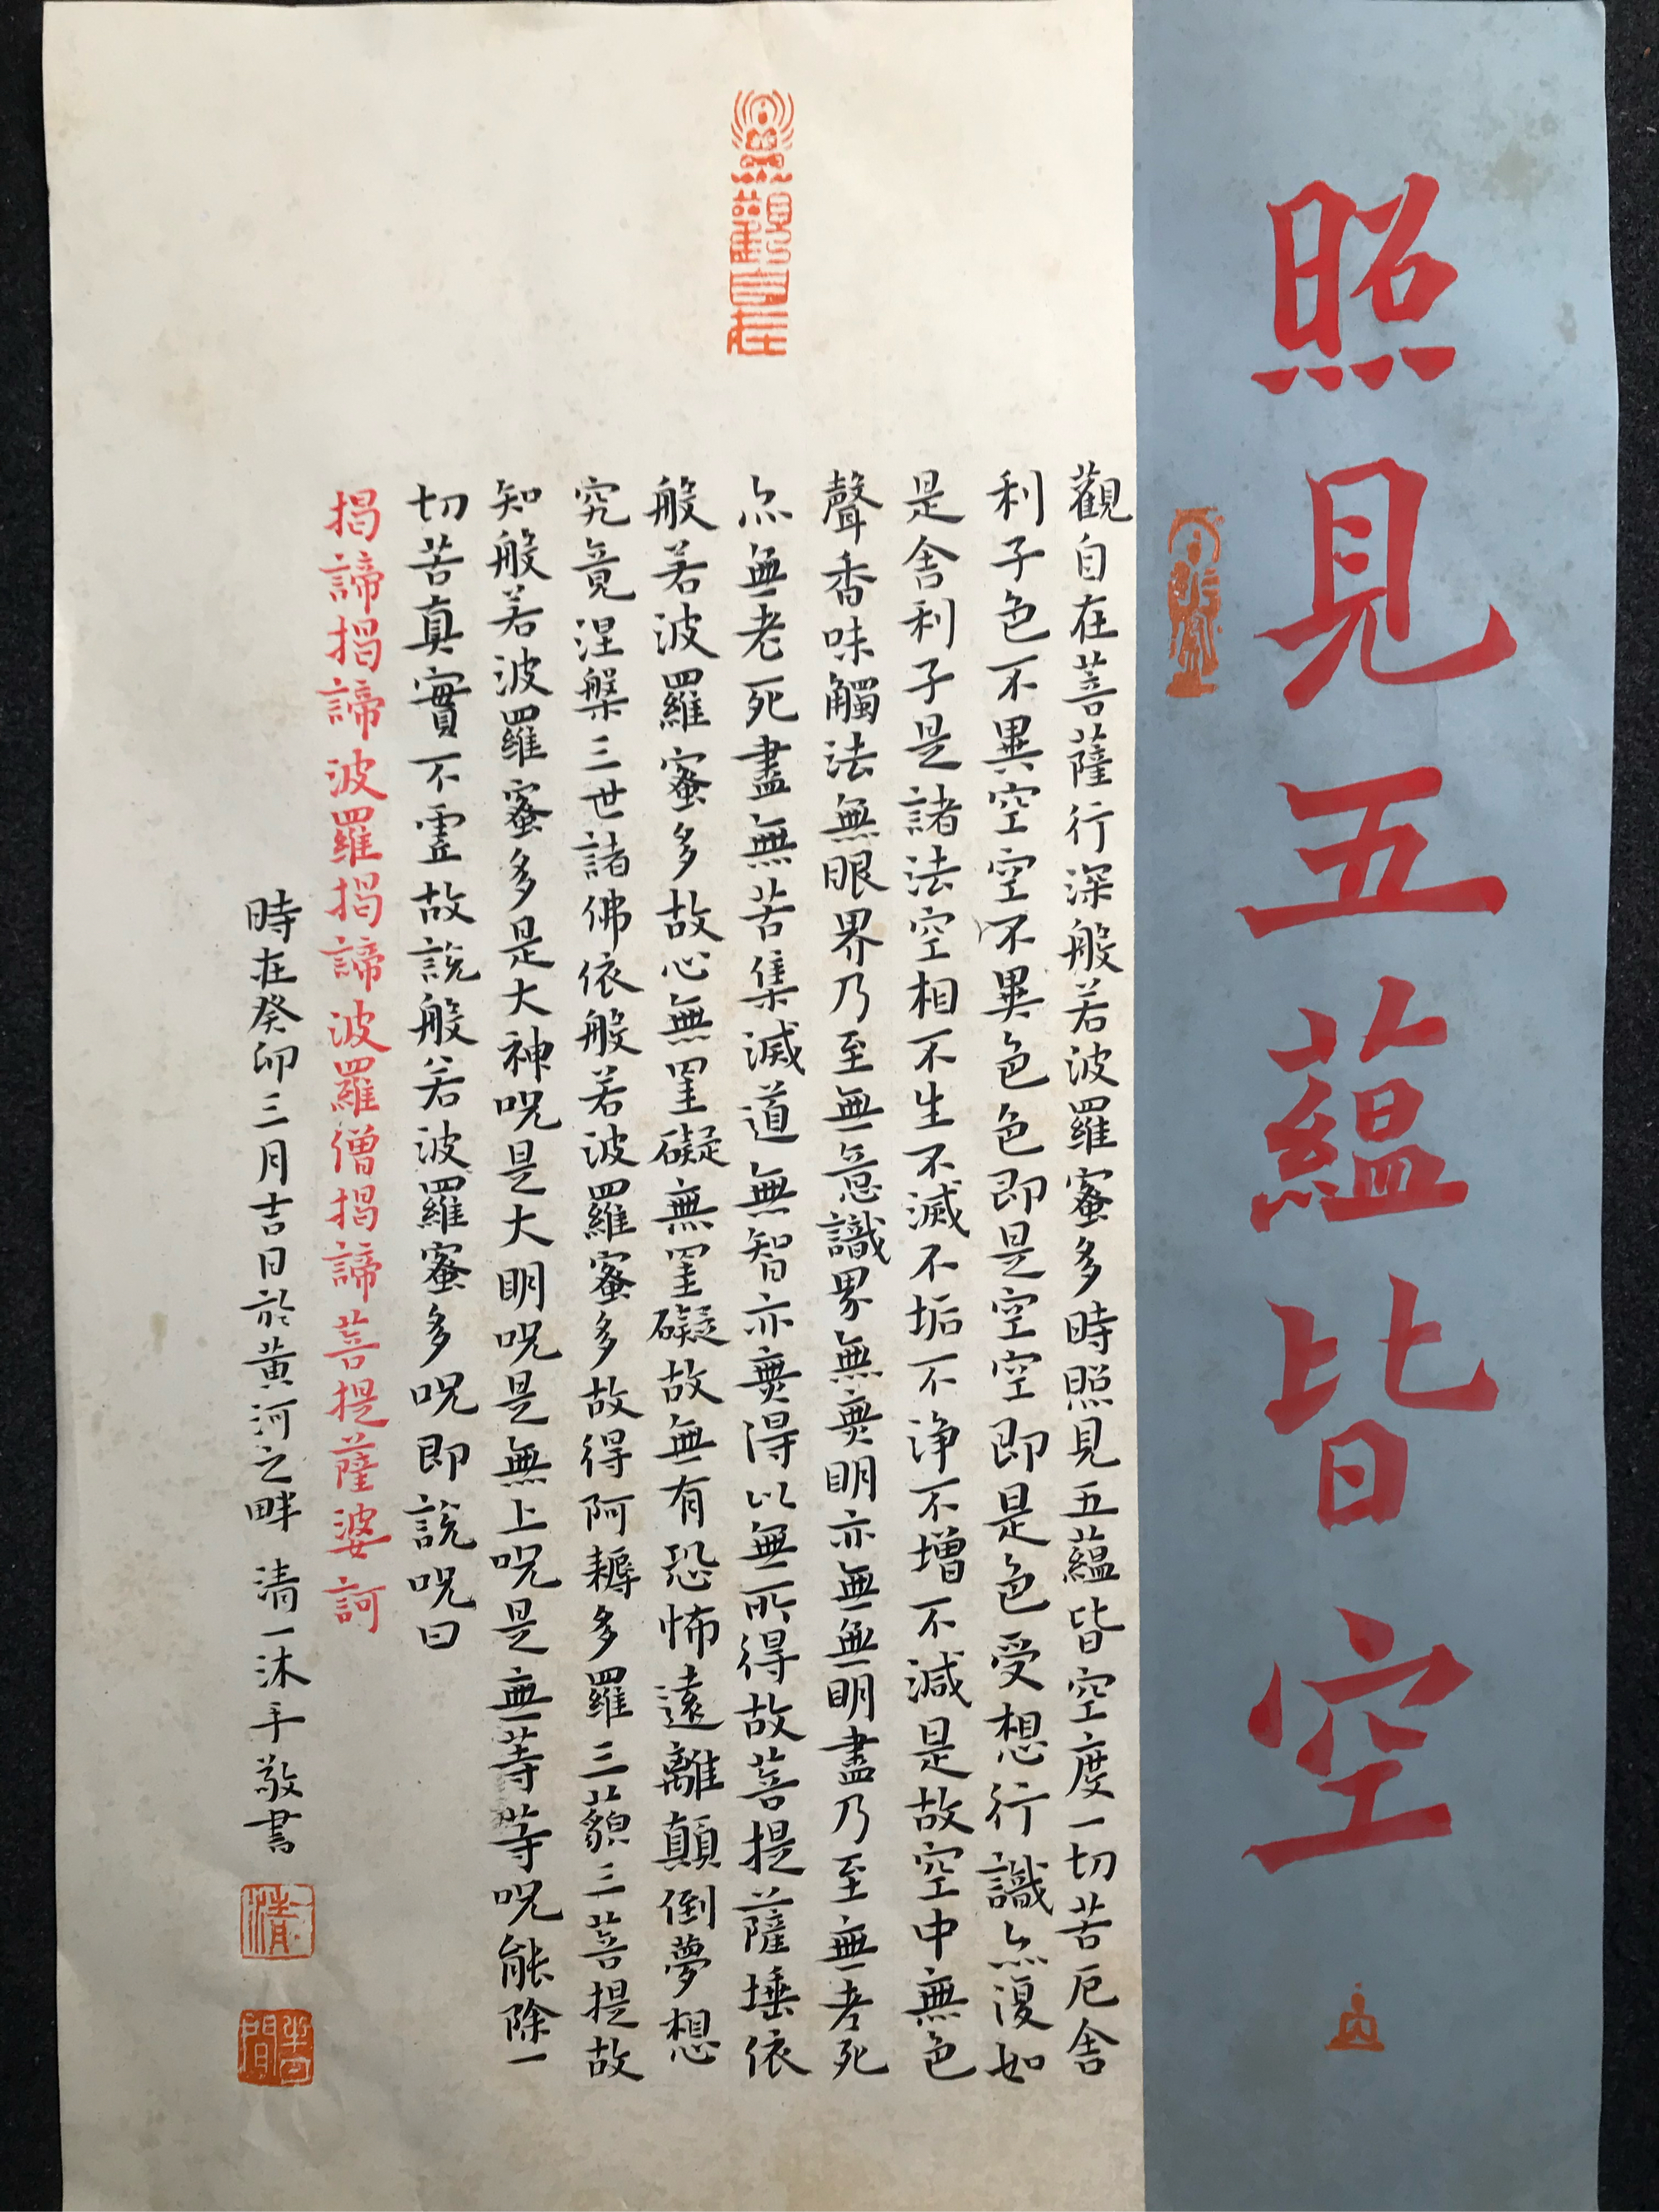 照見五蘊皆空
觀自在菩薩行深般若波羅蜜多時照見五蘊皆空度一切苦厄舍
利子色不異空空不異色色即是空空即是色受想行識亦復如
是舍利子是諸法空相不生不滅不垢不淨不增不減是故空中無色
聲香味觸法無眼界乃至無意識界無無明亦無無明盡乃至無老死
亦無老死盡無苦集滅道無智亦無得以無所得故菩提薩埵依
般若波羅蜜多故心無罣礙無罣礙故無有恐怖遠離顛倒夢想
究竟涅槃三世諸佛依般若波羅蜜多故得阿耨多羅三藐三菩提故
知般若波羅蜜多是大神咒是大明咒是無上咒是無等等咒能除一
切苦真實不虛故說般若波羅蜜多咒即說咒曰
揭諦揭諦波羅揭諦波羅僧揭諦菩提薩婆訶
時在癸卯三月吉日於黃河之畔 清一沐手敬書
觀自在
清一